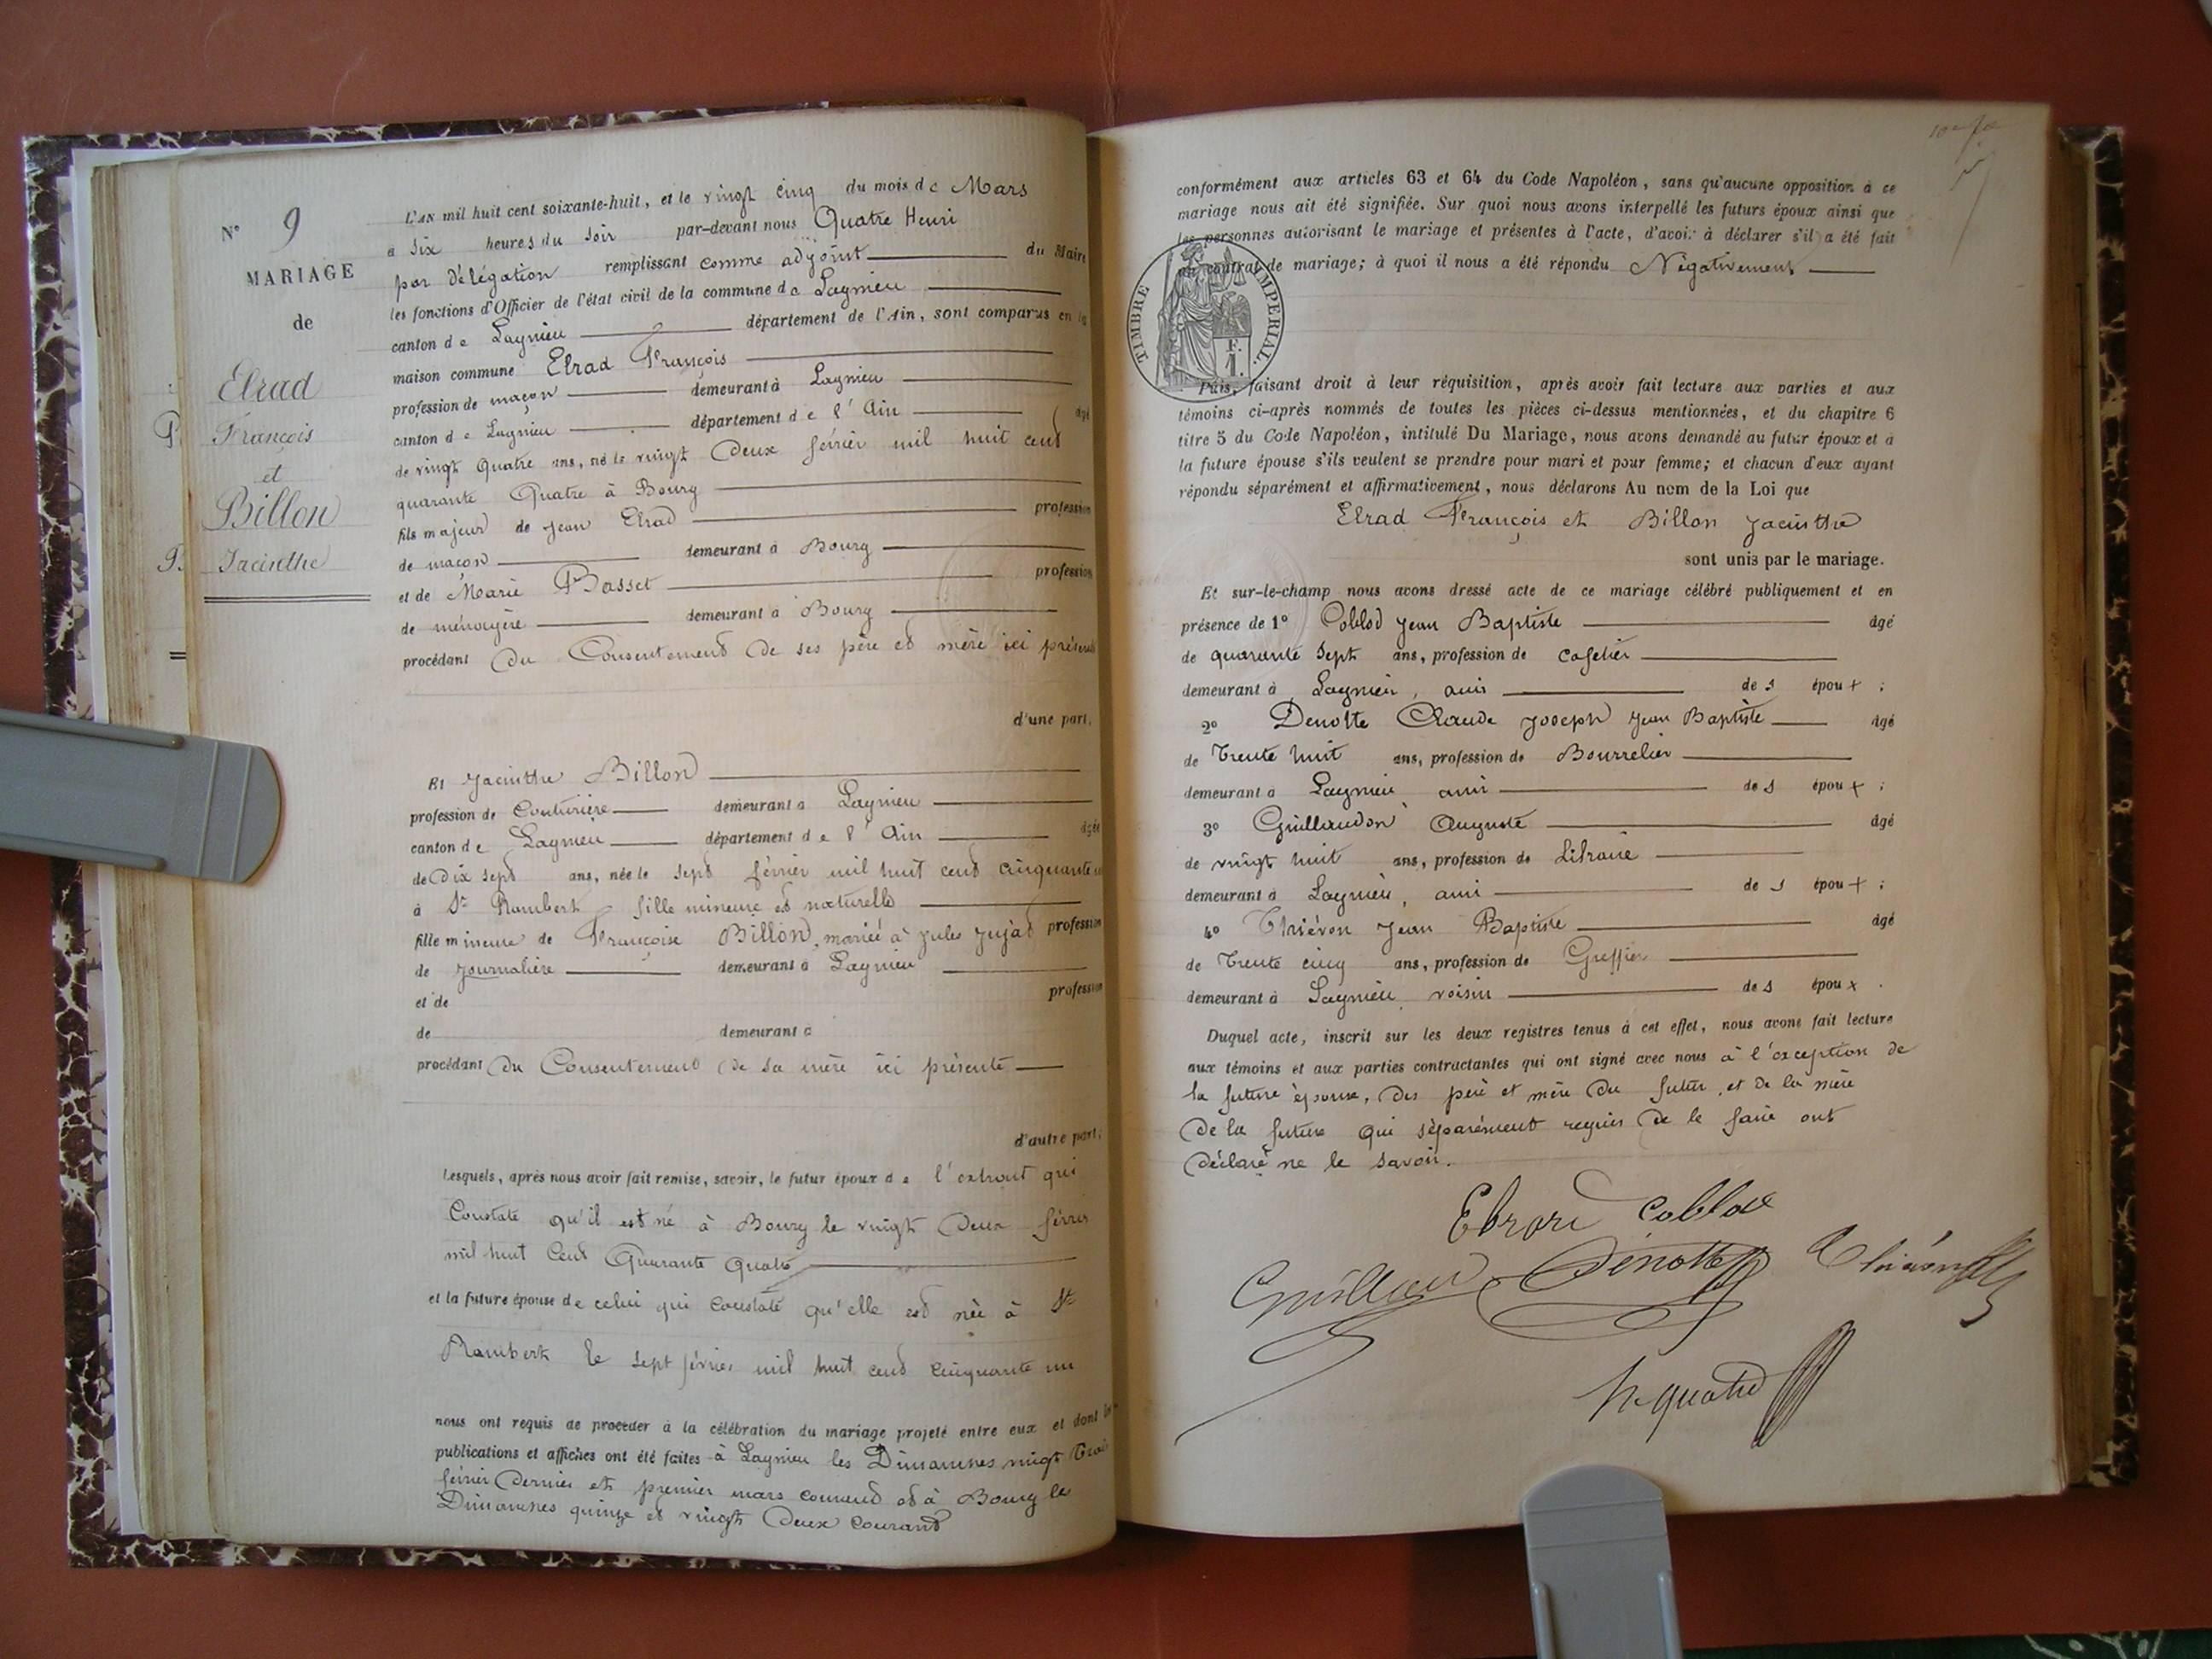 N° 9
MARIAGE
de
Elrad
François
et
Billon
Jacinthe
L'AN mil huit cent soixante-huit, et le vingt cinq du mois de Mars
à six heures du soir par-devant nous Quatre Henri
par délégation remplissant comme adjoint du Maire
les fonctions d'Officier de l'état civil de la commune de Lagnieu
canton de Lagnieu département de l'Ain, sont comparus en la
maison commune Elrad François
profession de maçon demeurant à Lagnieu
canton de Lagnieu département de l'Ain âgé
de vingt Quatre ans, né le vingt Deux février mil huit cent
quarante Quatre à Bourg
fils majeur de Jean Elrad profession
de maçon demeurant à Bourg
et de Marie Basset profession
de ménagère demeurant à Bourg
procédant du Consentement de ses père et mère ici présents
d'une part,
Et Jacinthe Billon
profession de Couturière demeurant à Lagnieu
canton de Lagnieu département de l'Ain âgée
de Dix sept ans, née le sept février mil huit cent cinquante un
à St Rambert fille mineure et naturelle
fille mineure de Françoise Billon, mariée à Jules Jujat profession
de Journalière demeurant à Lagnieu
et de profession
de demeurant à
procédant du Consentement de sa mère ici présente
d'autre part;
Lesquels, après nous avoir fait remise, savoir, le futur époux de l'extrait qui
Constate qu'il est né à Bourg le vingt Deux février
mil huit Cent Quarante Quatre
et la future épouse de celui qui constate qu'elle est née à St
Rambert le sept février mil huit cent cinquante un
nous ont requis de procéder à la célébration du mariage projeté entre eux et dont les
publications et affiches ont été faites à Lagnieu les Dimanches vingt Trois
février Dernier et premier mars courant et à Bourg les
Dimanches quinze et vingt Deux Courant
conformément aux articles 63 et 64 du Code Napoléon, sans qu'aucune opposition à ce
mariage nous ait été signifiée. Sur quoi nous avons interpellé les futurs époux ainsi que
les personnes autorisant le mariage et présentes à l'acte, d'avoir à déclarer s'il a été fait
un contrat de mariage; à quoi il nous a été répondu Négativement
TIMBRE IMPERIAL.
1 F.
Puis, faisant droit à leur réquisition, après avoir fait lecture aux parties et aux
témoins ci-après nommés de toutes les pièces ci-dessus mentionnées, et du chapitre 6
titre 5 du Code Napoléon, intitulé Du Mariage, nous avons demandé au futur époux et à
la future épouse s'ils veulent se prendre pour mari et pour femme; et chacun d'eux ayant
répondu séparément et affirmativement, nous déclarons Au nom de la Loi que
Elrad François et Billon Jacinthe
sont unis par le mariage.
Et sur-le-champ nous avons dressé acte de ce mariage célébré publiquement et en
présence de 1° Coblod Jean Baptiste âgé
de quarante sept ans, profession de cafetier
demeurant à Lagnieu, ami des époux;
2° Denotte Claude Joseph Jean Baptiste âgé
de Trente huit ans, profession de Bourrelier
demeurant à Lagnieu ami des époux;
3° Guillaudon Auguste âgé
de vingt huit ans, profession de Libraire
demeurant à Lagnieu, ami des époux;
4° Thiévon Jean Baptiste âgé
de Trente cinq ans, profession de Greffier
demeurant à Lagnieu voisin des époux.
Duquel acte, inscrit sur les deux registres tenus à cet effet, nous avons fait lecture
aux témoins et aux parties contractantes qui ont signé avec nous à l'exception de
la future épouse, des père et mère du futur, et de la mère
de la future qui séparément requis de le faire ont
déclaré ne le savoir.
Ebrard Coblod
Denotte
h quatre